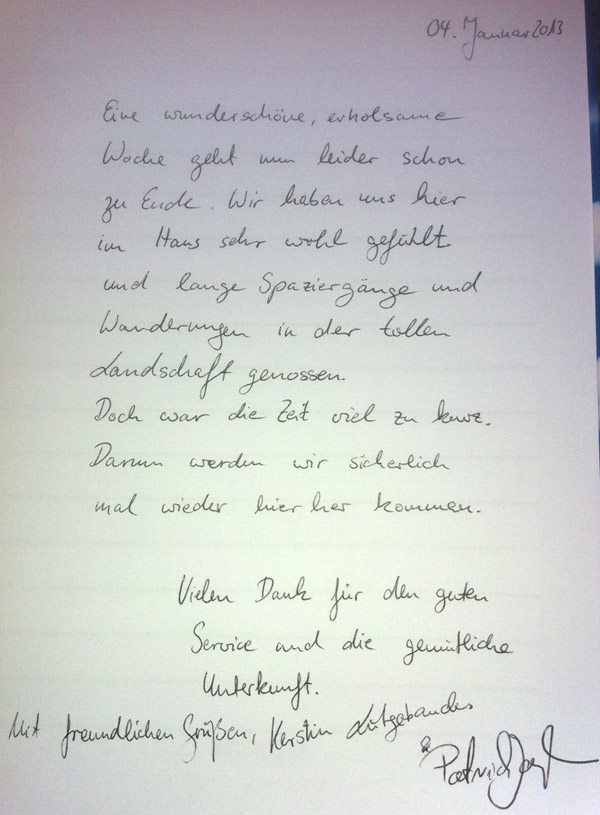 04. Januar 2013
Eine wunderschöne, erholsame
Woche geht nun leider schon
zu Ende. Wir haben uns hier
im Haus sehr wohl gefühlt
und lange Spaziergänge und
Wanderungen in der tollen
Landschaft genossen.
Doch war die Zeit viel zu kurz.
Darum werden wir sicherlich
mal wieder hier her kommen.
Vielen Dank für den guten
Service und die gemütliche
Unterkunft.
Mit freundlichen Grüßen, Kerstin
& Patrick